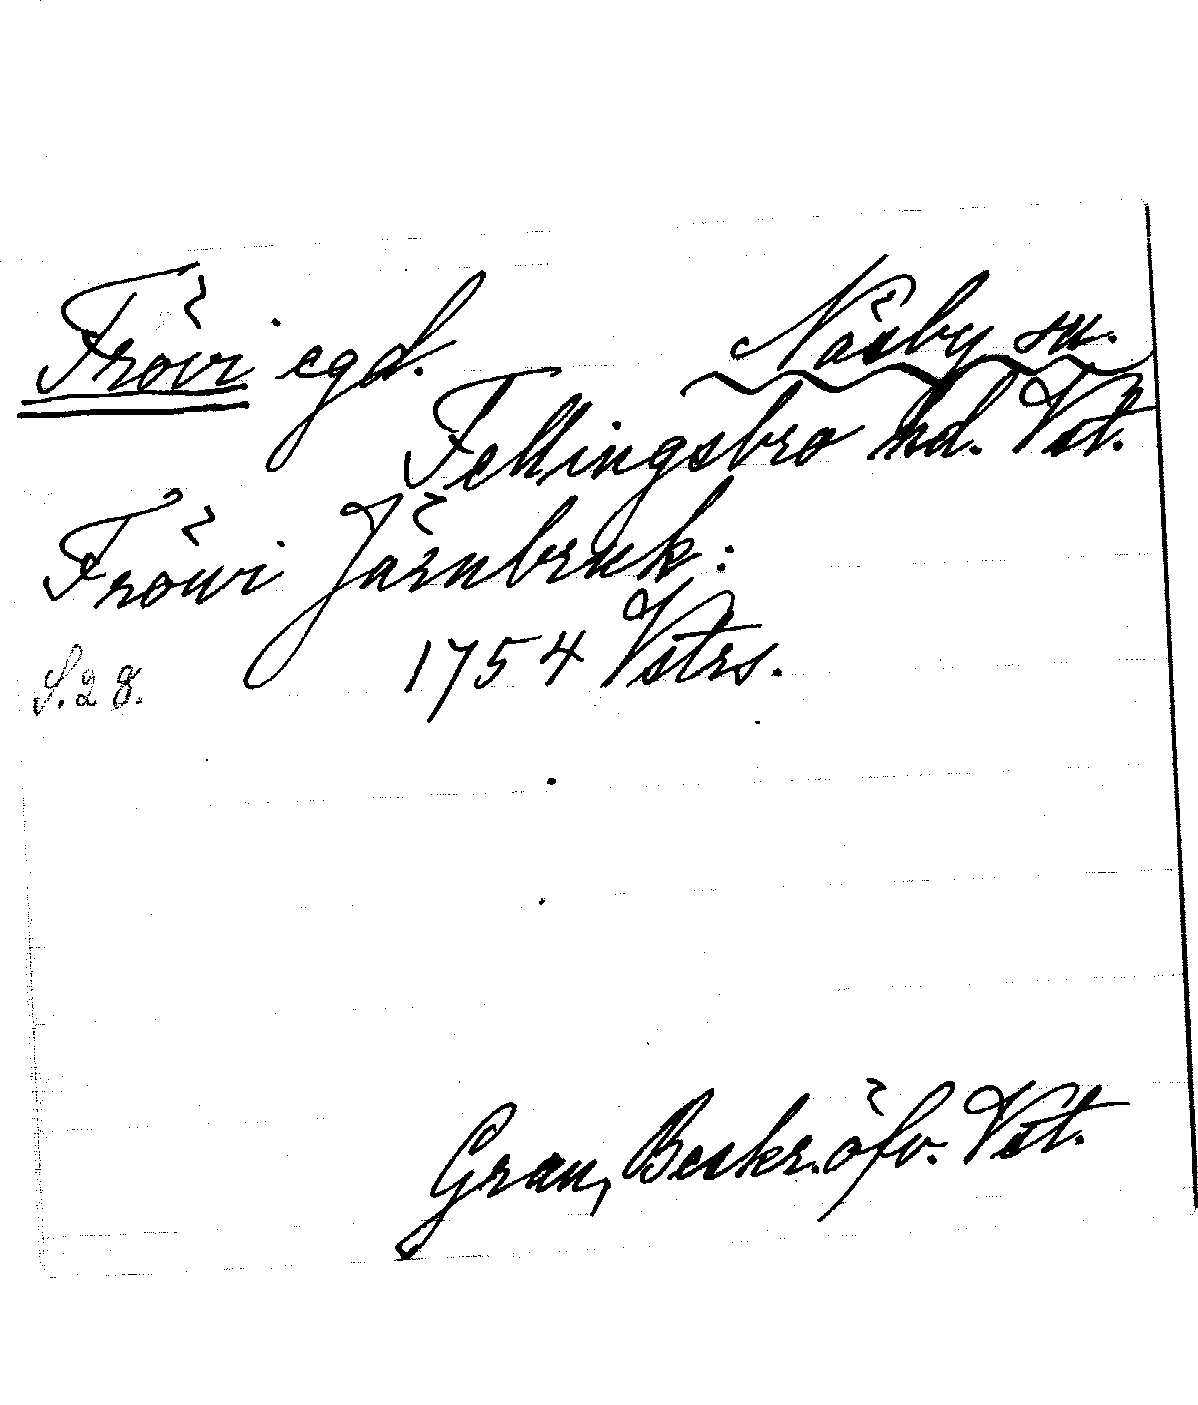 Frövi egd. Näsby sn.
Fellingsbro hd. Vstl.
Fröwi Järnbruk:
1754 Vstrs.
S. 28.
Grau, Beskr. öfv. Vstl.